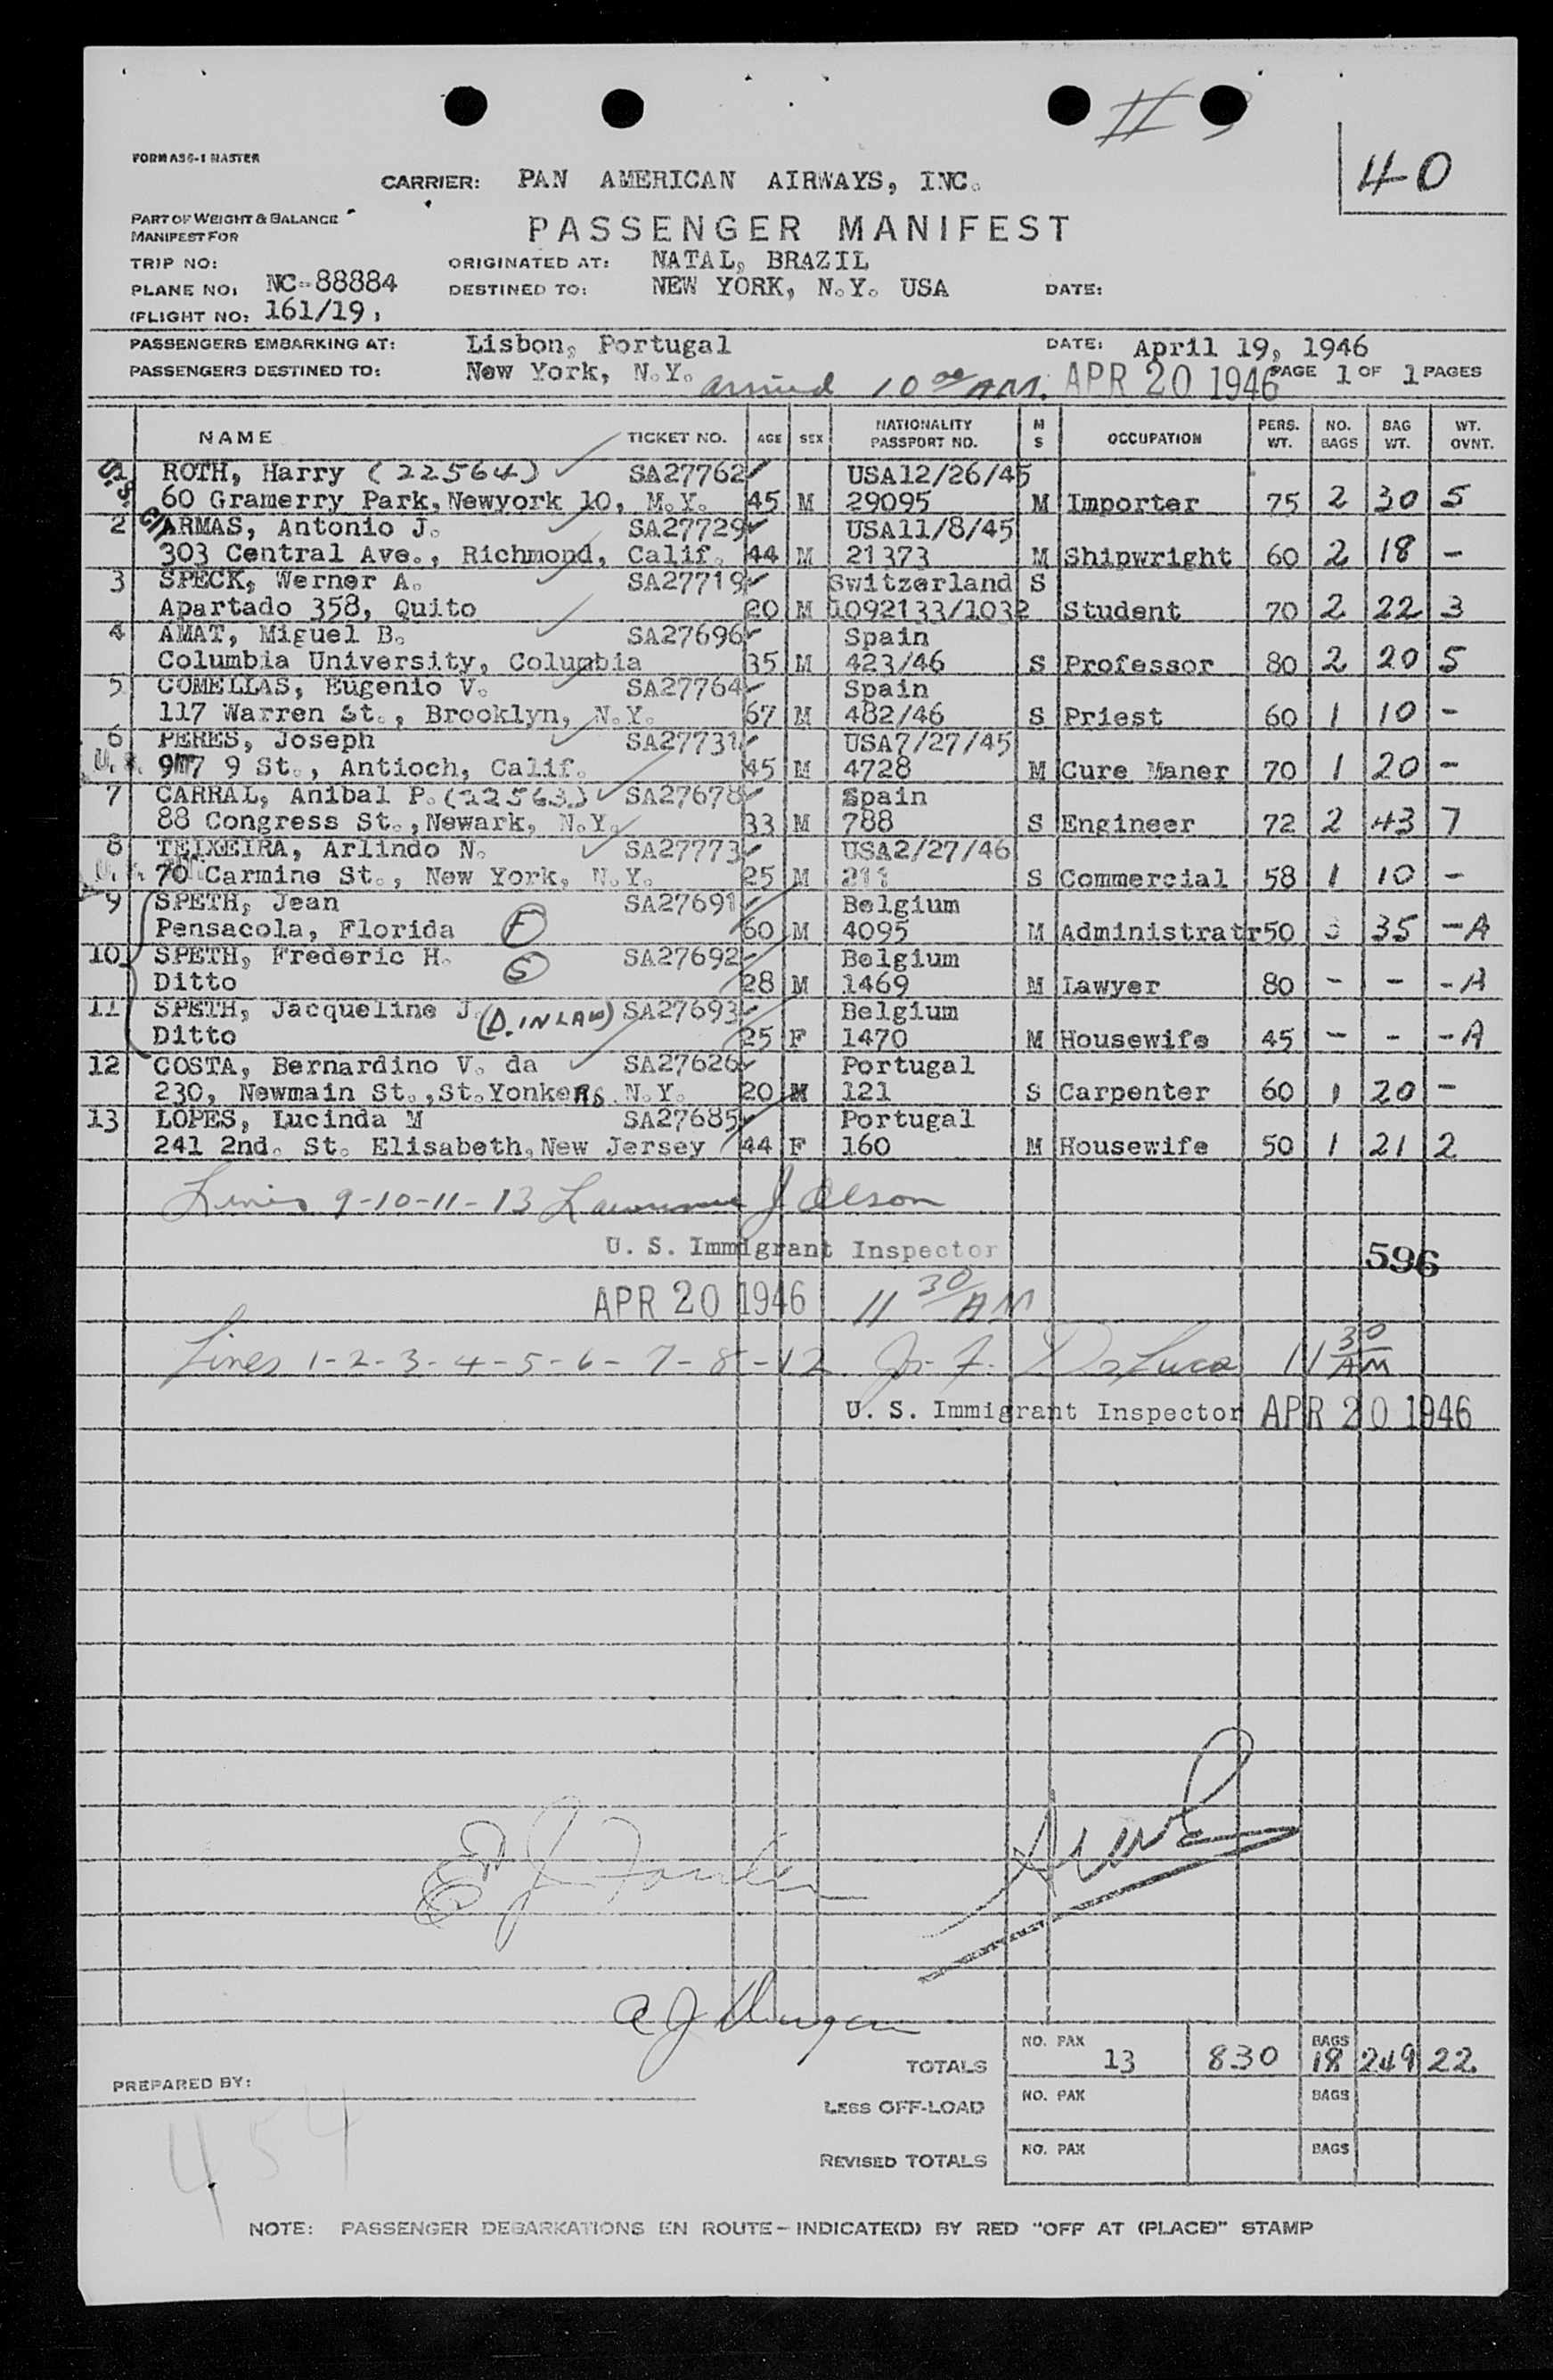 # 3
40
FORM A36-1 MASTER
CARRIER: PAN AMERICAN AIRWAYS, INC.
PART OF WEIGHT & BALANCE
MANIFEST FOR
PASSENGER MANIFEST
TRIP NO: ORIGINATED AT: NATAL, BRAZIL
PLANE NO: NC-88884 DESTINED TO: NEW YORK, N.Y. USA DATE:
(FLIGHT NO: 161/19,
PASSENGERS EMBARKING AT: Lisbon, Portugal DATE: April 19, 1946
PASSENGERS DESTINED TO: New York, N.Y. arrived 10 00 AM. APR 20 1946 PAGE 1 OF 1 PAGES
NAME TICKET NO. AGE SEX NATIONALITY PASSPORT NO. M S OCCUPATION PERS. WT. NO. BAGS BAG WT. WT. OVNT.
U.S. Cit ROTH, Harry (22564) SA27762 USA12/26/45
60 Gramerry Park,Newyork 10, M.Y. 45 M 29095 M Importer 75 2 30 5
2 ARMAS, Antonio J. SA27729 USA11/8/45
303 Central Ave., Richmond, Calif. 44 M 21373 M Shipwright 60 2 18 -
3 SPECK, Werner A. SA27719 Switzerland S
Apartado 358, Quito 20 M 1092133/1032 Student 70 2 22 3
4 AMAT, Miguel B. SA27696 Spain
Columbia University, Columbia 35 M 423/46 S Professor 80 2 20 5
5 COMELLAS, Eugenio V. SA27764 Spain
117 Warren St., Brooklyn, N.Y. 67 M 482/46 S Priest 60 1 10 -
6 PERES, Joseph SA27731 USA7/27/45
917 9 St., Antioch, Calif. 45 M 4728 M Cure Maner 70 1 20 -
7 CARRAL, Anibal P. (22563) SA27678 Spain
88 Congress St.,Newark, N.Y. 33 M 788 S Engineer 72 2 43 7
8 TEIXEIRA, Arlindo N. SA27773 USA2/27/46
70 Carmine St., New York, N.Y. 25 M 211 S Commercial 58 1 10 -
9 SPETH, Jean SA27691 Belgium
Pensacola, Florida (F) 60 M 4095 M Administratr 50 3 35 - A
10 SPETH, Frederic H. SA27692 Belgium
Ditto (S) 28 M 1469 M Lawyer 80 - - - A
11 SPETH, Jacqueline J. (D. IN LAW) SA27693 Belgium
Ditto 25 F 1470 M Housewife 45 - - - A
12 COSTA, Bernardino V. da SA27626 Portugal
230, Newmain St.,St.Yonkers. N.Y. 20 M 121 S Carpenter 60 1 20 -
13 LOPES, Lucinda M SA27685 Portugal
241 2nd. St. Elisabeth,New Jersey 44 F 160 M Housewife 50 1 21 2
Lines 9-10-11-13 Lawrence J Olson
U. S. Immigrant Inspector
596
APR 20 1946 11 30 AM
Lines 1-2-3-4-5-6-7-8-12 F. DeLuca 11 30 AM
U. S. Immigrant Inspector APR 20 1946
E J
A J
TOTALS NO. PAX 13 830 BAGS 18 249 22.
PREPARED BY:
LESS OFF-LOAD NO. PAX BAGS
REVISED TOTALS NO. PAX BAGS
454
NOTE: PASSENGER DEBARKATIONS EN ROUTE - INDICATE(D) BY RED "OFF AT (PLACE)" STAMP